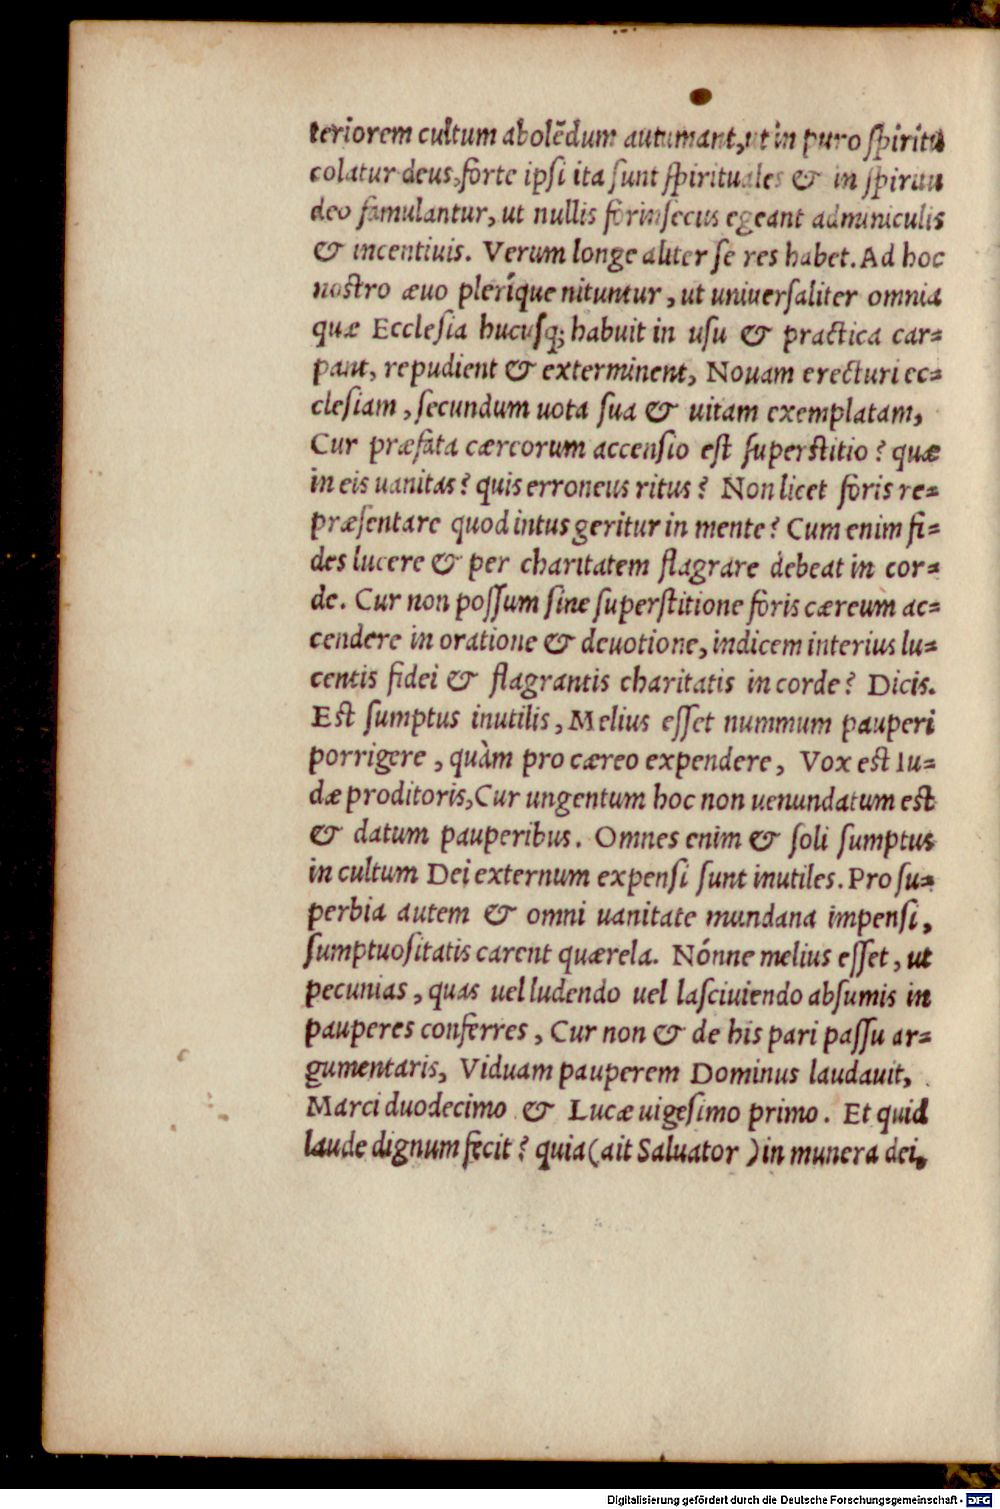 teriorem cultum abolẽdum autumant, ut in puro ſpiritu
colatur deus, forte ipſi ita ſunt ſpirituales & in ſpiritu
deo famulantur, ut nullis forinſecus egeant adminiculis
& incentiuis. Verum longe aliter ſe res habet. Ad hoc
nostro æuo pleríque nituntur, ut uniuerſaliter omnia
quæ Eccleſia hucuſq; habuit in uſu & practica car⸗
pant, repudient & exterminent, Nouam erecturi ec⸗
cleſiam, ſecundum uota ſua & uitam exemplatam,
Cur præfata cærcorum accenſio eſt ſuperſtitio? quæ
in eis uanitas? quis erroneus ritus? Non licet foris re⸗
præſentare quod intus geritur in mente? Cum enim fi⸗
des lucere & per charitatem flagrare debeat in cor⸗
de. Cur non poſſum ſine ſuperſtitione foris cæreum ac⸗
cendere in oratione & deuotione, indicem interius lu⸗
centis fidei & flagrantis charitatis in corde? Dicis.
Eſt ſumptus inutilis, Melius eſſet nummum pauperi
porrigere, quàm pro cæreo expendere, Vox est Iu⸗
dæ proditoris, Cur ungentum hoc non uenundatum eſt
& datum pauperibus. Omnes enim & ſoli ſumptus
in cultum Dei externum expenſi ſunt inutiles. Pro ſu⸗
perbia autem & omni uanitate mundana impenſi,
ſumptuoſitatis carent quærela. Nónne melius eſſet, ut
pecunias, quas uel ludendo uel laſciuiendo abſumis in
pauperes conferres, Cur non & de his pari paſſu ar⸗
gumentaris, Viduam pauperem Dominus laudauit,
Marci duodecimo & Lucæ uigeſimo primo. Et quid
laude dignum fecit? quia (ait Saluator) in munera dei,
Digitalisierung gefördert durch die Deutsche Forschungsgemeinschaft - DFG